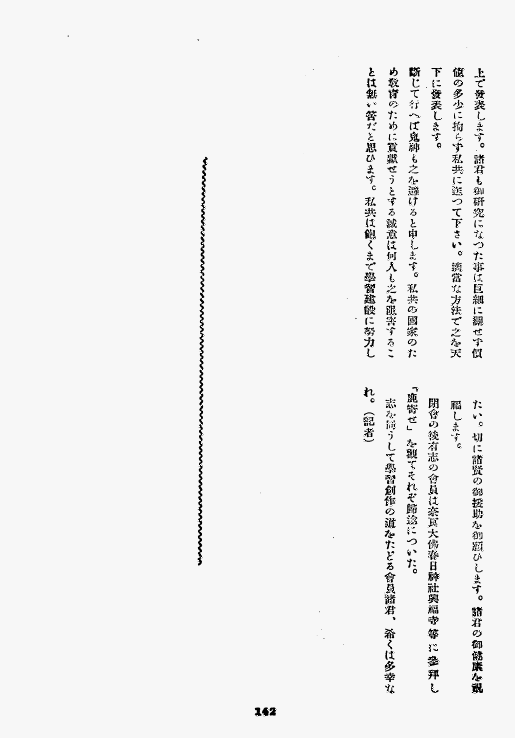 上で發表します。諸君も御研究になつた事は巨細に拘せず價
値の多少に拘らず私共に送つて下さい。適當な方法で之を天
下に發表します。
斷じて行へば鬼神も之を避けると申します。私共の國家のた
め敎育のために貢獻せうとする誠意は何人も之を阻害するこ
とは無い筈だと思ひます。私共は飽くまで學習建設に努力し
たい。切に諸賢の御援助を御願ひします。諸君の御健康を祝
福します。
閉會の後有志の會員は奈良大佛春日神社興福寺等に參拜し
「鹿寄せ」を觀てそれぞ歸途についた。
志を同うして學習創作の道をたどる會員諸君、希くは多幸な
れ。（記者）
142